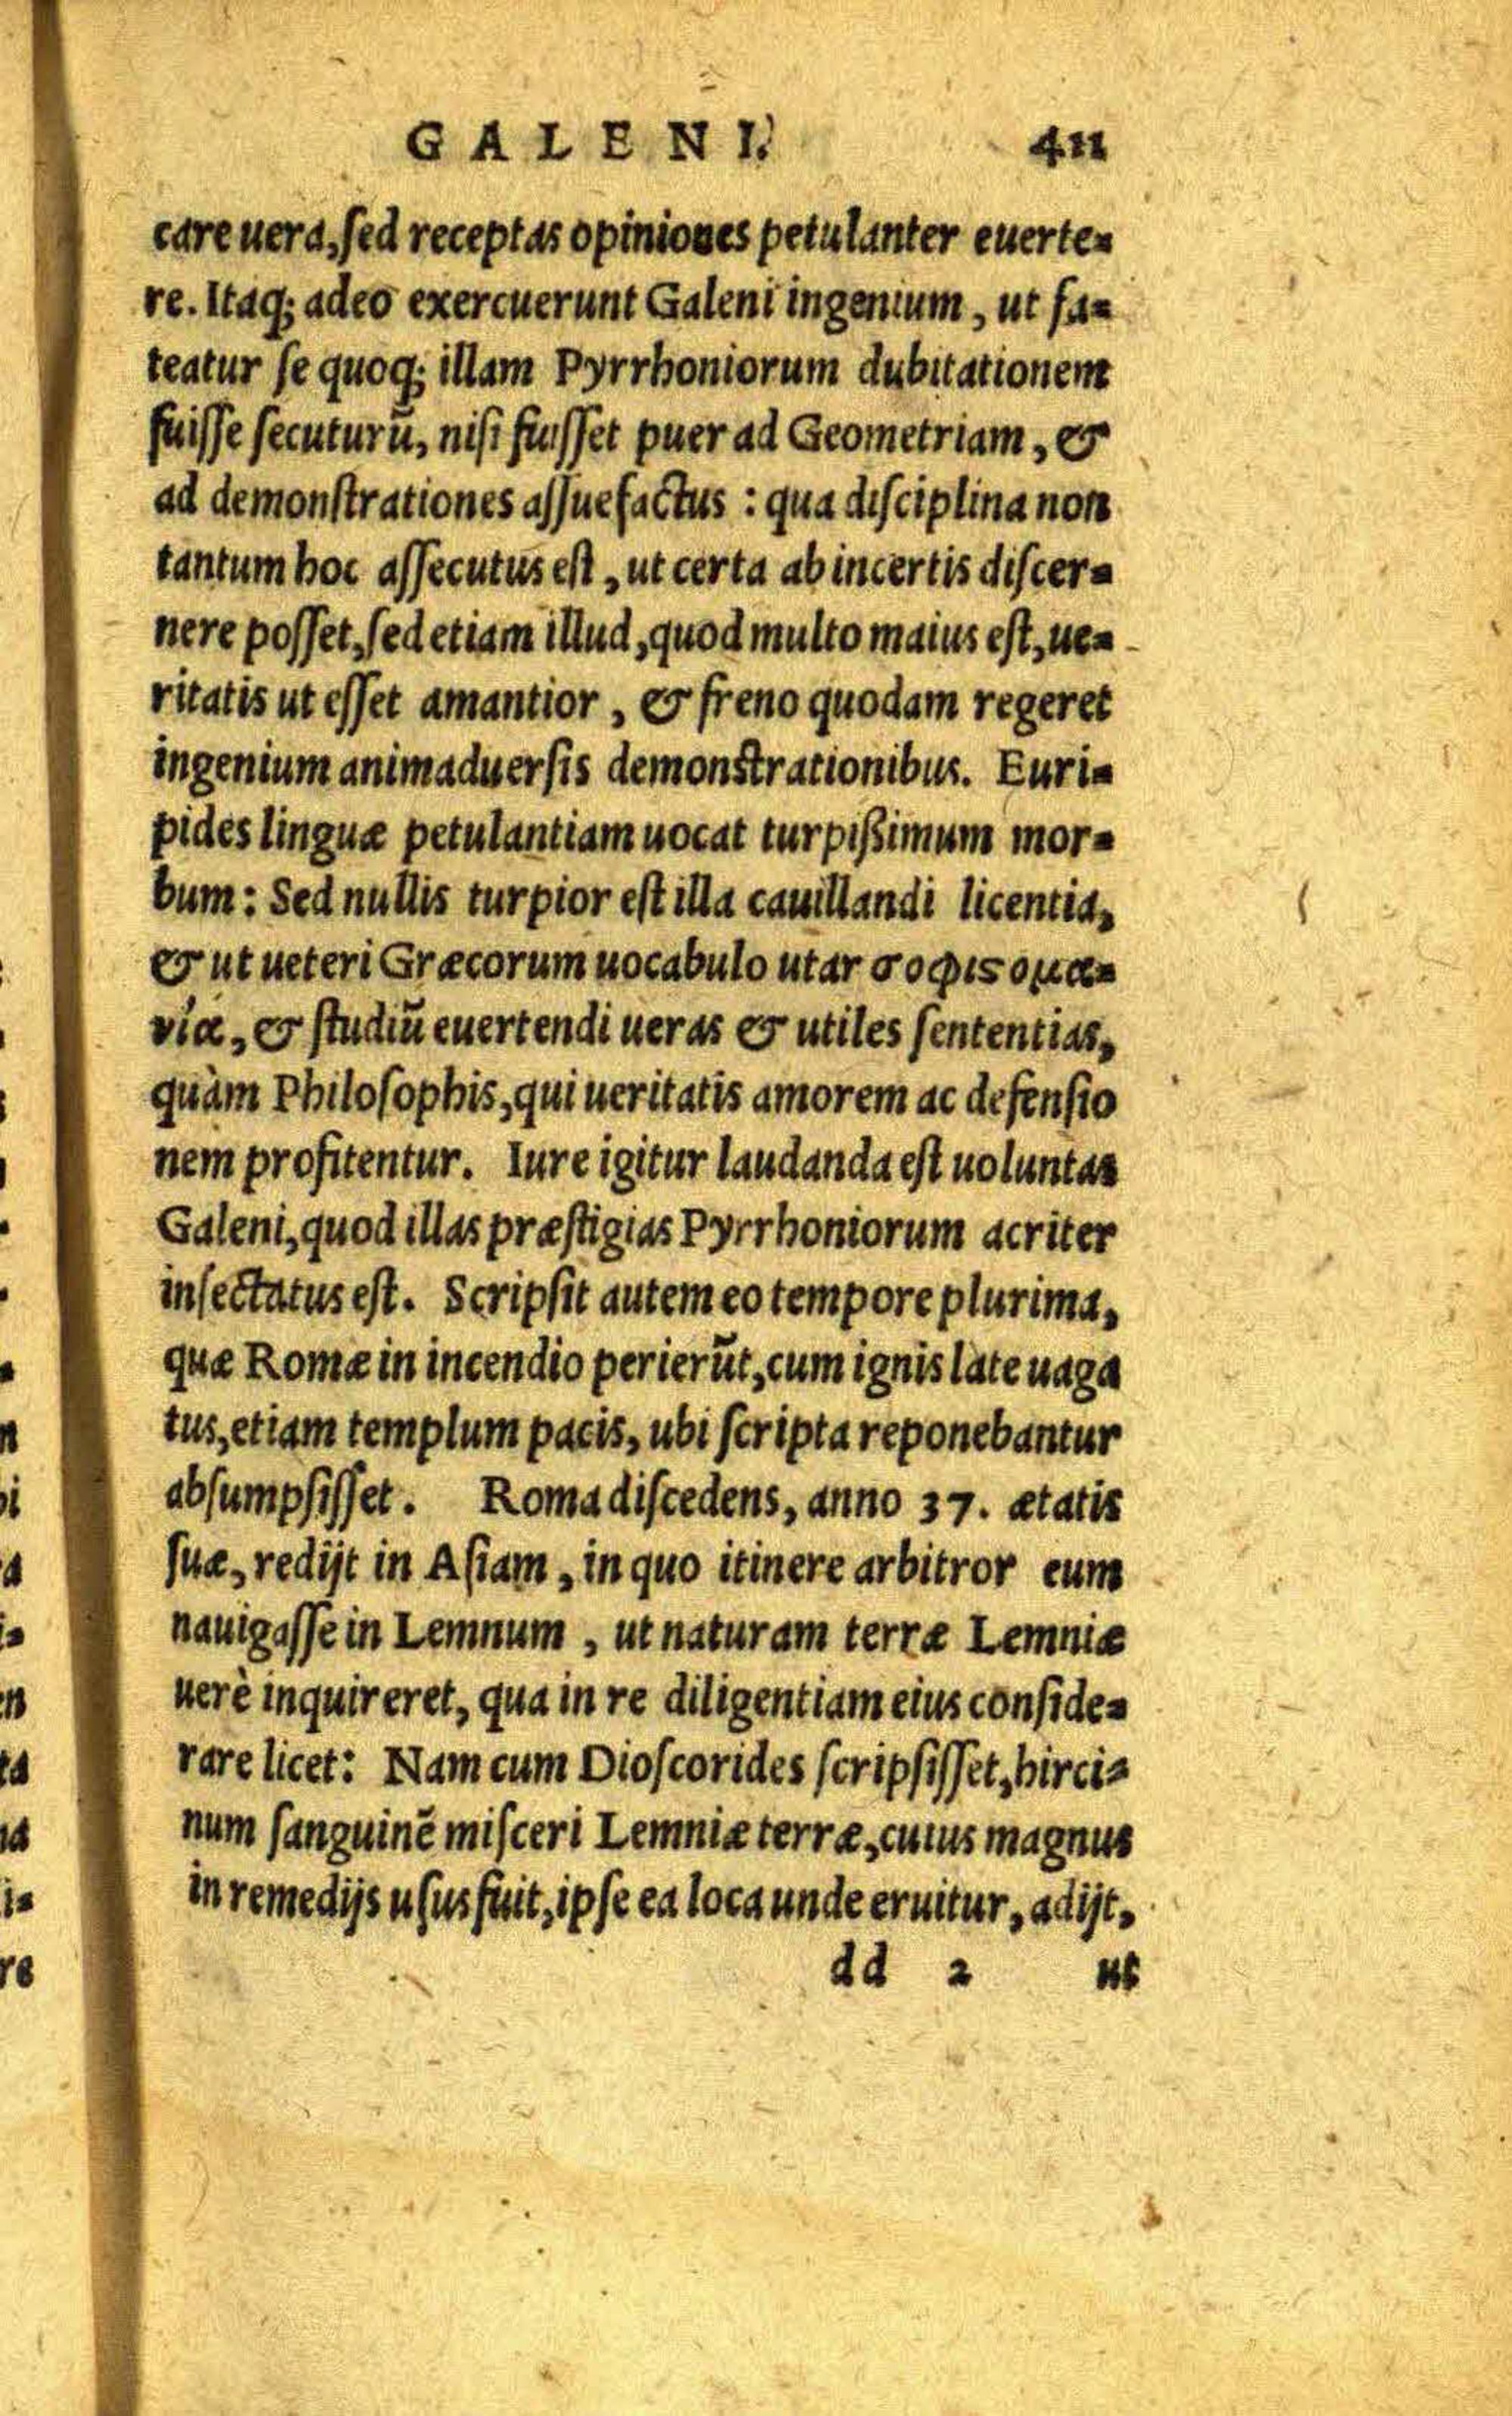 GALENI. 411
care uera, sed receptas opiniones petulanter euerte-
re. Itaq; adeo exercuerunt Galeni ingenium, ut fa-
teatur se quoq; illam Pyrrhoniorum dubitationem
fuisse secuturũ, nisi fuisset puer ad Geometriam, &
ad demonstrationes assuefactus: qua disciplina non
tantum hoc assecutus est, ut certa ab incertis discer-
nere posset, sed etiam illud, quod multo maius est, ue-
ritatis ut esset amantior, & freno quodam regeret
ingenium animaduersis demonstrationibus. Euri-
pides linguæ petulantiam uocat turpißimum mor-
bum: Sed nullis turpior est illa cauillandi licentia,
& ut ueteri Græcorum uocabulo utar σοφιςομα-
νία, & studiũ euertendi ueras & utiles sententias,
quàm Philosophis, qui ueritatis amorem ac defensio
nem profitentur. Iure igitur laudanda est uoluntas
Galeni, quod illas præstigias Pyrrhoniorum acriter
insectatus est. Scripsit autem eo tempore plurima,
quæ Romæ in incendio perierũt, cum ignis late uaga
tus, etiam templum pacis, ubi scripta reponebantur
absumpsisset. Roma discedens, anno 37. ætatis
suæ, redijt in Asiam, in quo itinere arbitror eum
nauigasse in Lemnum, ut naturam terræ Lemniæ
uerè inquireret, qua in re diligentiam eius conside-
rare licet: Nam cum Dioscorides scripsisset, hirci-
num sanguinẽ misceri Lemniæ terræ, cuius magnus
in remedijs usus fuit, ipse ea loca unde eruitur, adijt,
dd 2 ut